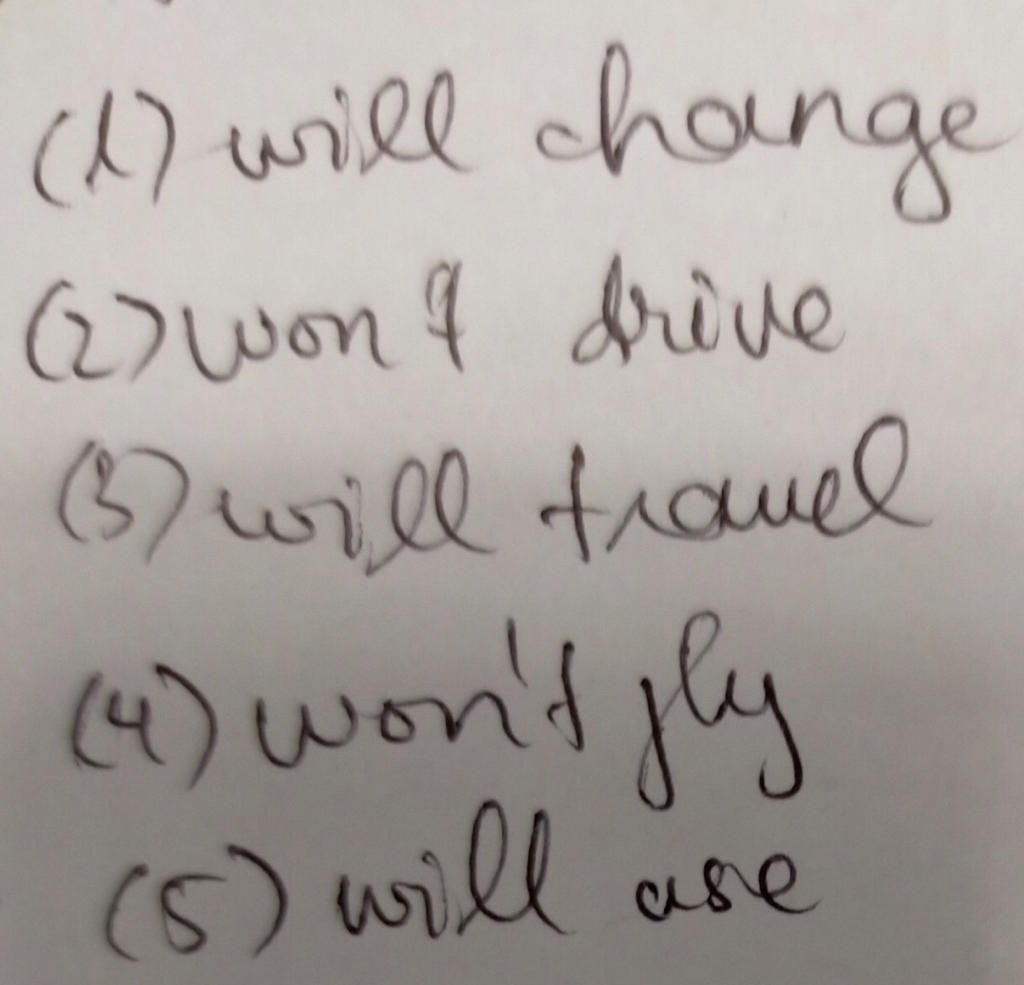 (1) will change
(2) won't drive
(3) will travel
(4) won't fly
(5) will use